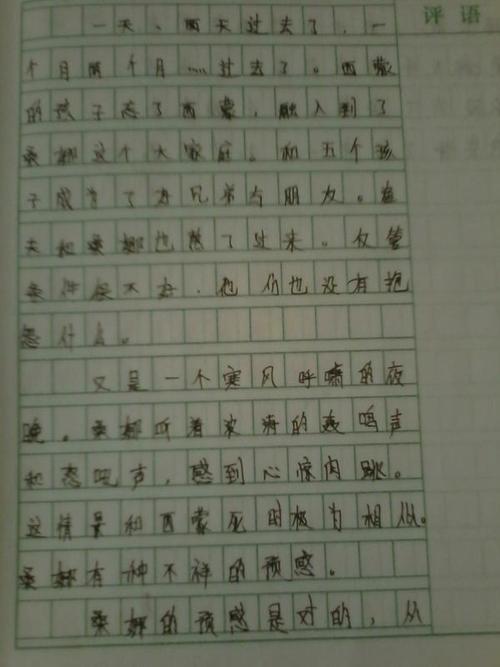 评语
一天、两天过去了,一
个月两个月……过去了。西蒙
的孩子忘了西蒙,融入到了
桑娜这个大家庭。和五个孩
子成为了好兄弟与朋友。渔
夫和桑娜也熬了过来。仅管
条件很不好,他们也没有抱
怨什么。
又是一个寒风呼啸的夜
晚。桑娜听着波涛的轰鸣声
和怒吼声,感到心惊肉跳。
这情景和西蒙死时极为相似。
桑娜有一种不祥的预感。
桑娜的预感是对的,从